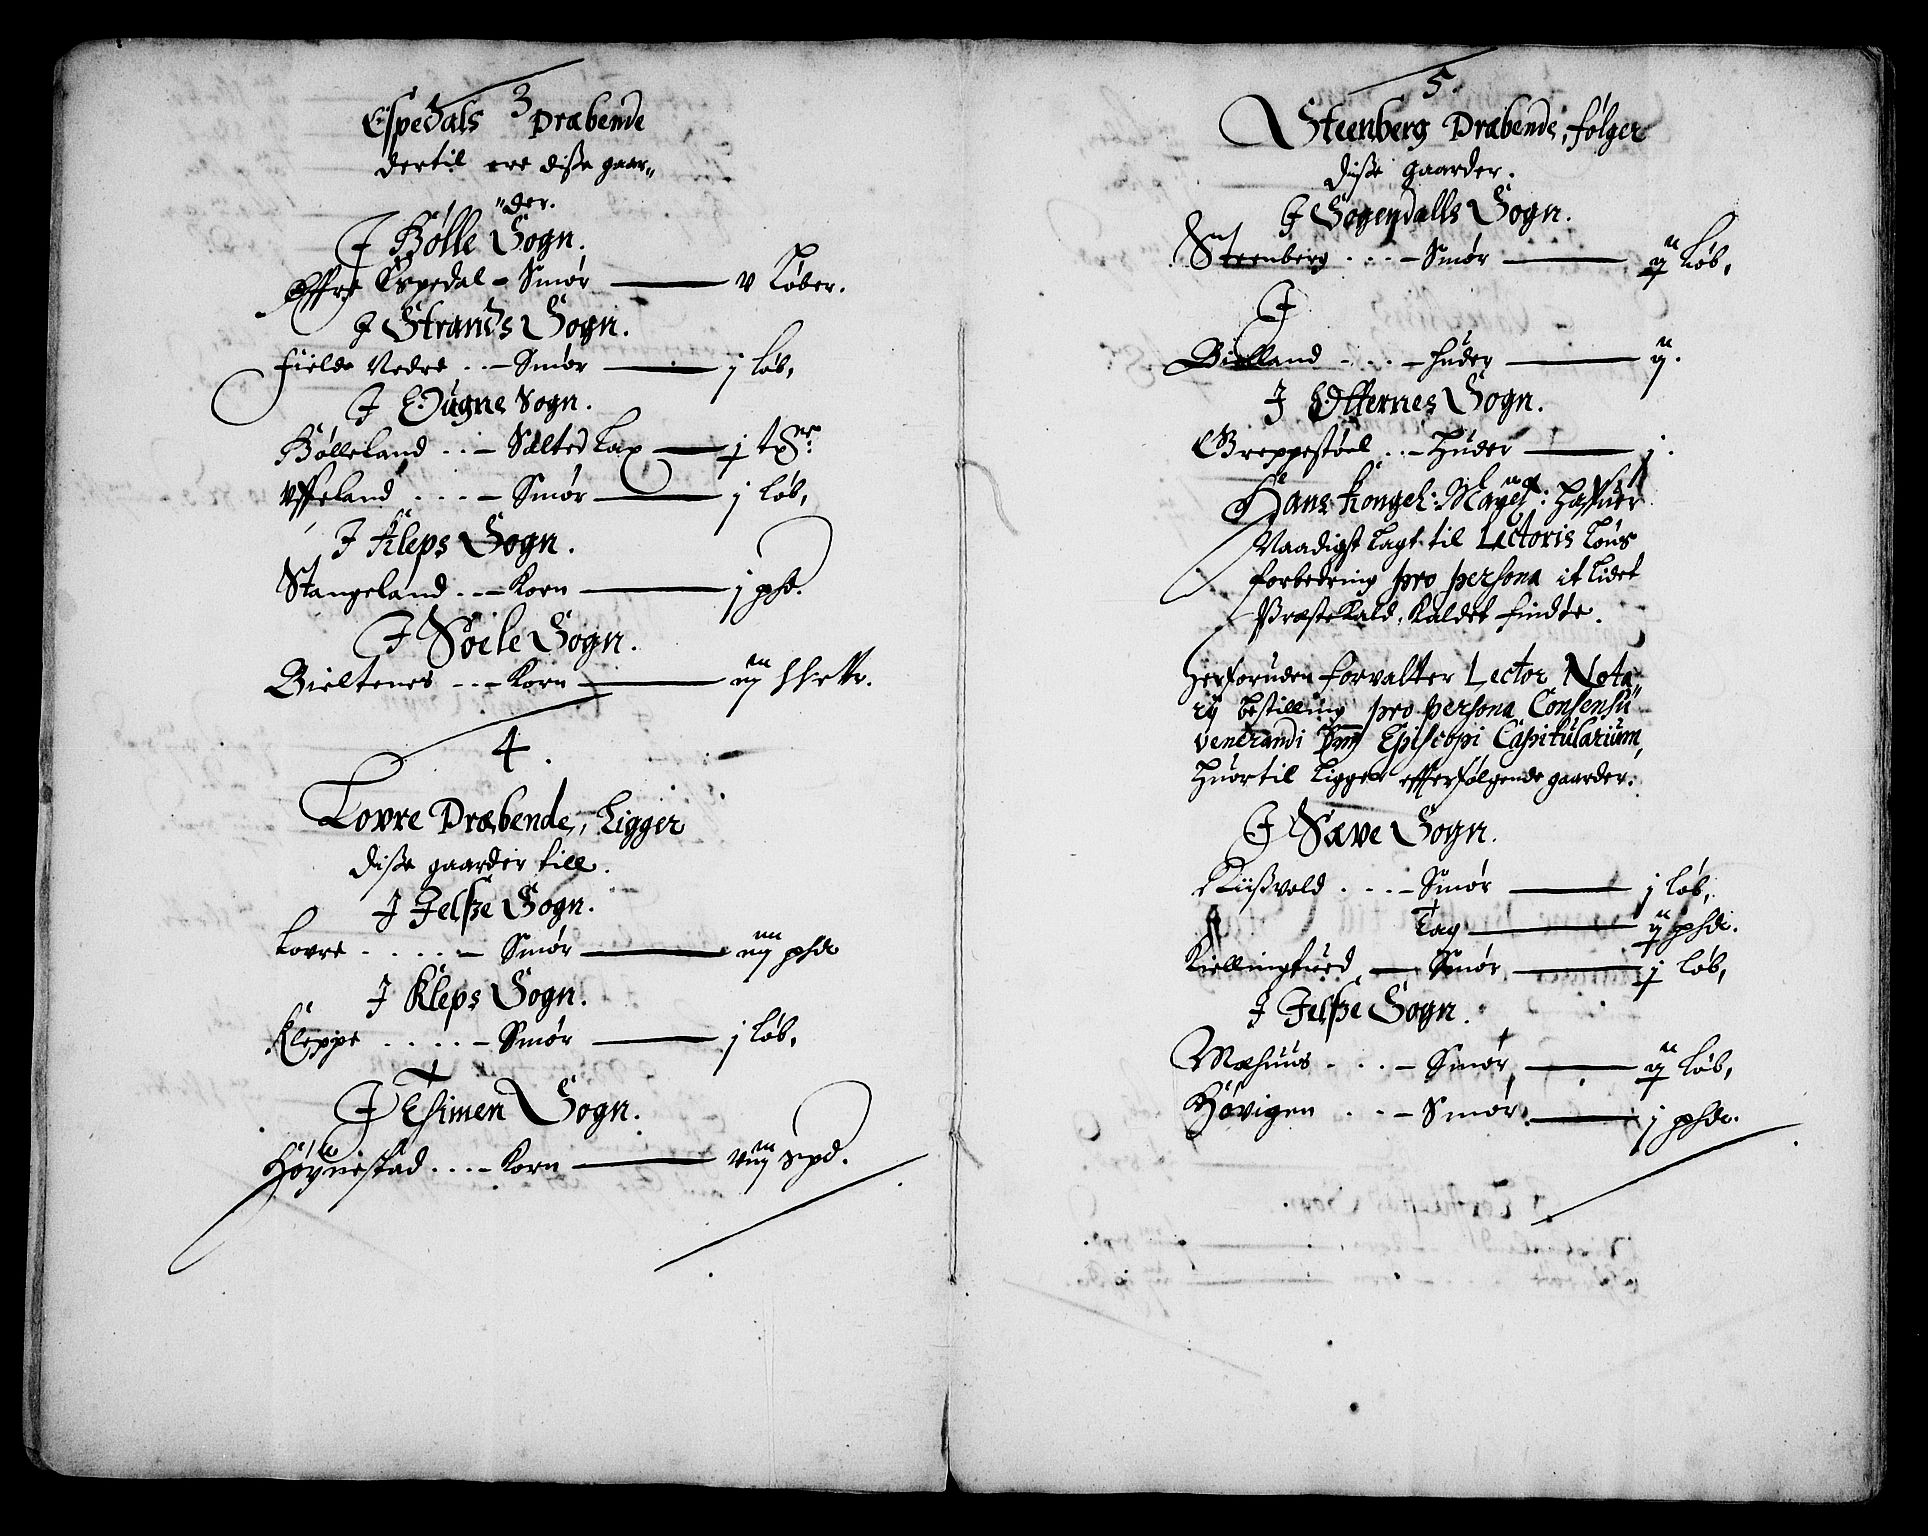 3
Espedals Præbende
dertil ere disse gaar„
„der.
J Bølle Sogn.
Øffre Espedal - Smør — v Løber.
J Strands Sogn.
Fielde Nedre .. - Smør — j løb,
J Øugne Sogn.
Bølleland .. - Salted Lax — j
Vffeland .... - Smør — j løb,
J Kleps Sogn.
Stangeland .. - Korn — j phd.
J Soile Sogn.
Bieltenes .. - Korn — iij
4.
Lovre Præbende, Ligger
disse gaarder till.
J Jelsze Sogn.
Lovre ..... - Smør — iiij phd
J Kleps Sogn.
Kleppe ..... - Smør — j løb,
J Thimen Sogn.
Høynestad .... - Korn — viij spd.
5.
Steenberg Præbende, følger
disse gaarder.
J Sogendalls Sogn.
Steenberg .... - Smør — ij Løb,
J
Bielland .... - huder — ij.
J Otternes Sogn.
Greppestøel .. - Huder — j.
Hans Kongel: Mayest: Haffuer
Naadigst lagt til Lectoris Løns
forbedring pro persona it lidet
Præstekald, kaldet Findøe.
Herforuden forvalter Lector Nota„
rij bestilling pro persona Consensu
venerandi Dnn Episcopi Capitularium,
Huortil Ligger effterfølgende gaarder.
J Sæve Sogn.
Kiißvold .... - Smør — j løb,
Tag — ij phd.
Kiellingtued — Smør — j løb,
J Jelsze Sogn.
Mæhuus .... - Smør — ij Løb,
Høvigen ... - Smør. — j phd.